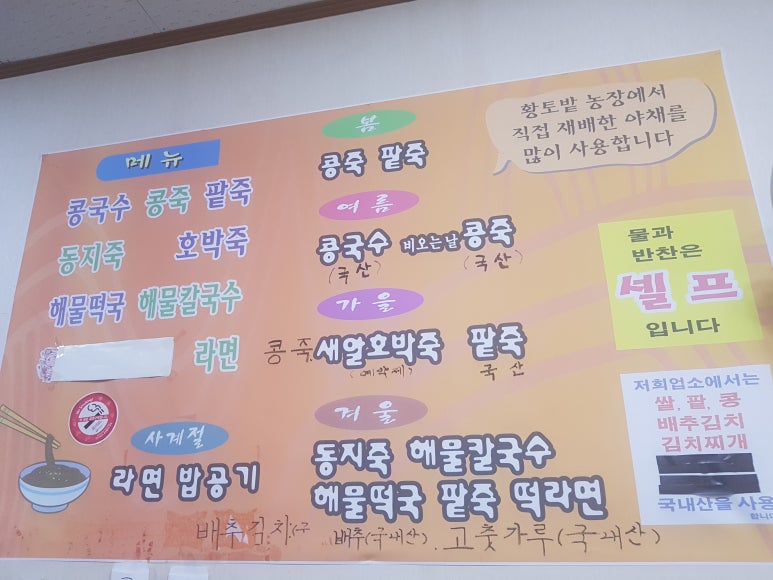 메뉴
콩국수 콩죽 팥죽
동지죽 호박죽
해물떡국 해물칼국수
라면
사계절
라면 밥공기
봄
콩죽 팥죽
여름
콩국수 비오는날 콩죽
(국산) (국산)
가을
콩죽 새알호박죽 팥죽
(예약제) 국산
겨울
동지죽 해물칼국수
해물떡국 팥죽 떡라면
배추김치(국 배추(국내산). 고춧가루(국내산)
황토밭 농장에서
직접 재배한 야채를
많이 사용합니다
물과
반찬은
셀프
입니다
저희업소에서는
쌀, 팥, 콩
배추김치
김치찌개
국내산을 사용
합니다